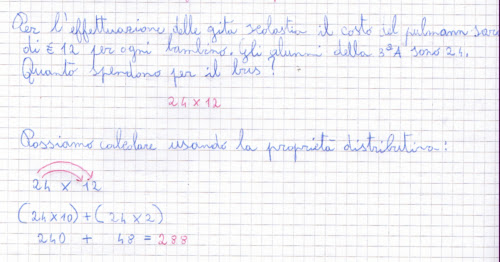 Per l'effettuazione delle gita scolastica il costo del pulmann sarà
di € 12 per ogni bambino. Gli alunni della 3ªA sono 24.
Quanto spendono per il bus?
24 x 12
Possiamo calcolare usando la proprietà distributiva:
24 x 12
(24x10) + (24 x 2)
240 + 48 = 288